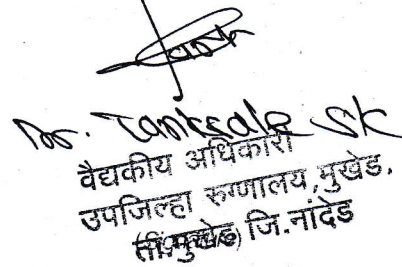 Dr. Tanksale SK
वैद्यकीय अधिकारी
उपजिल्हा रुग्णालय,मुखेड.
ता.मुखेड जि.नांदेड